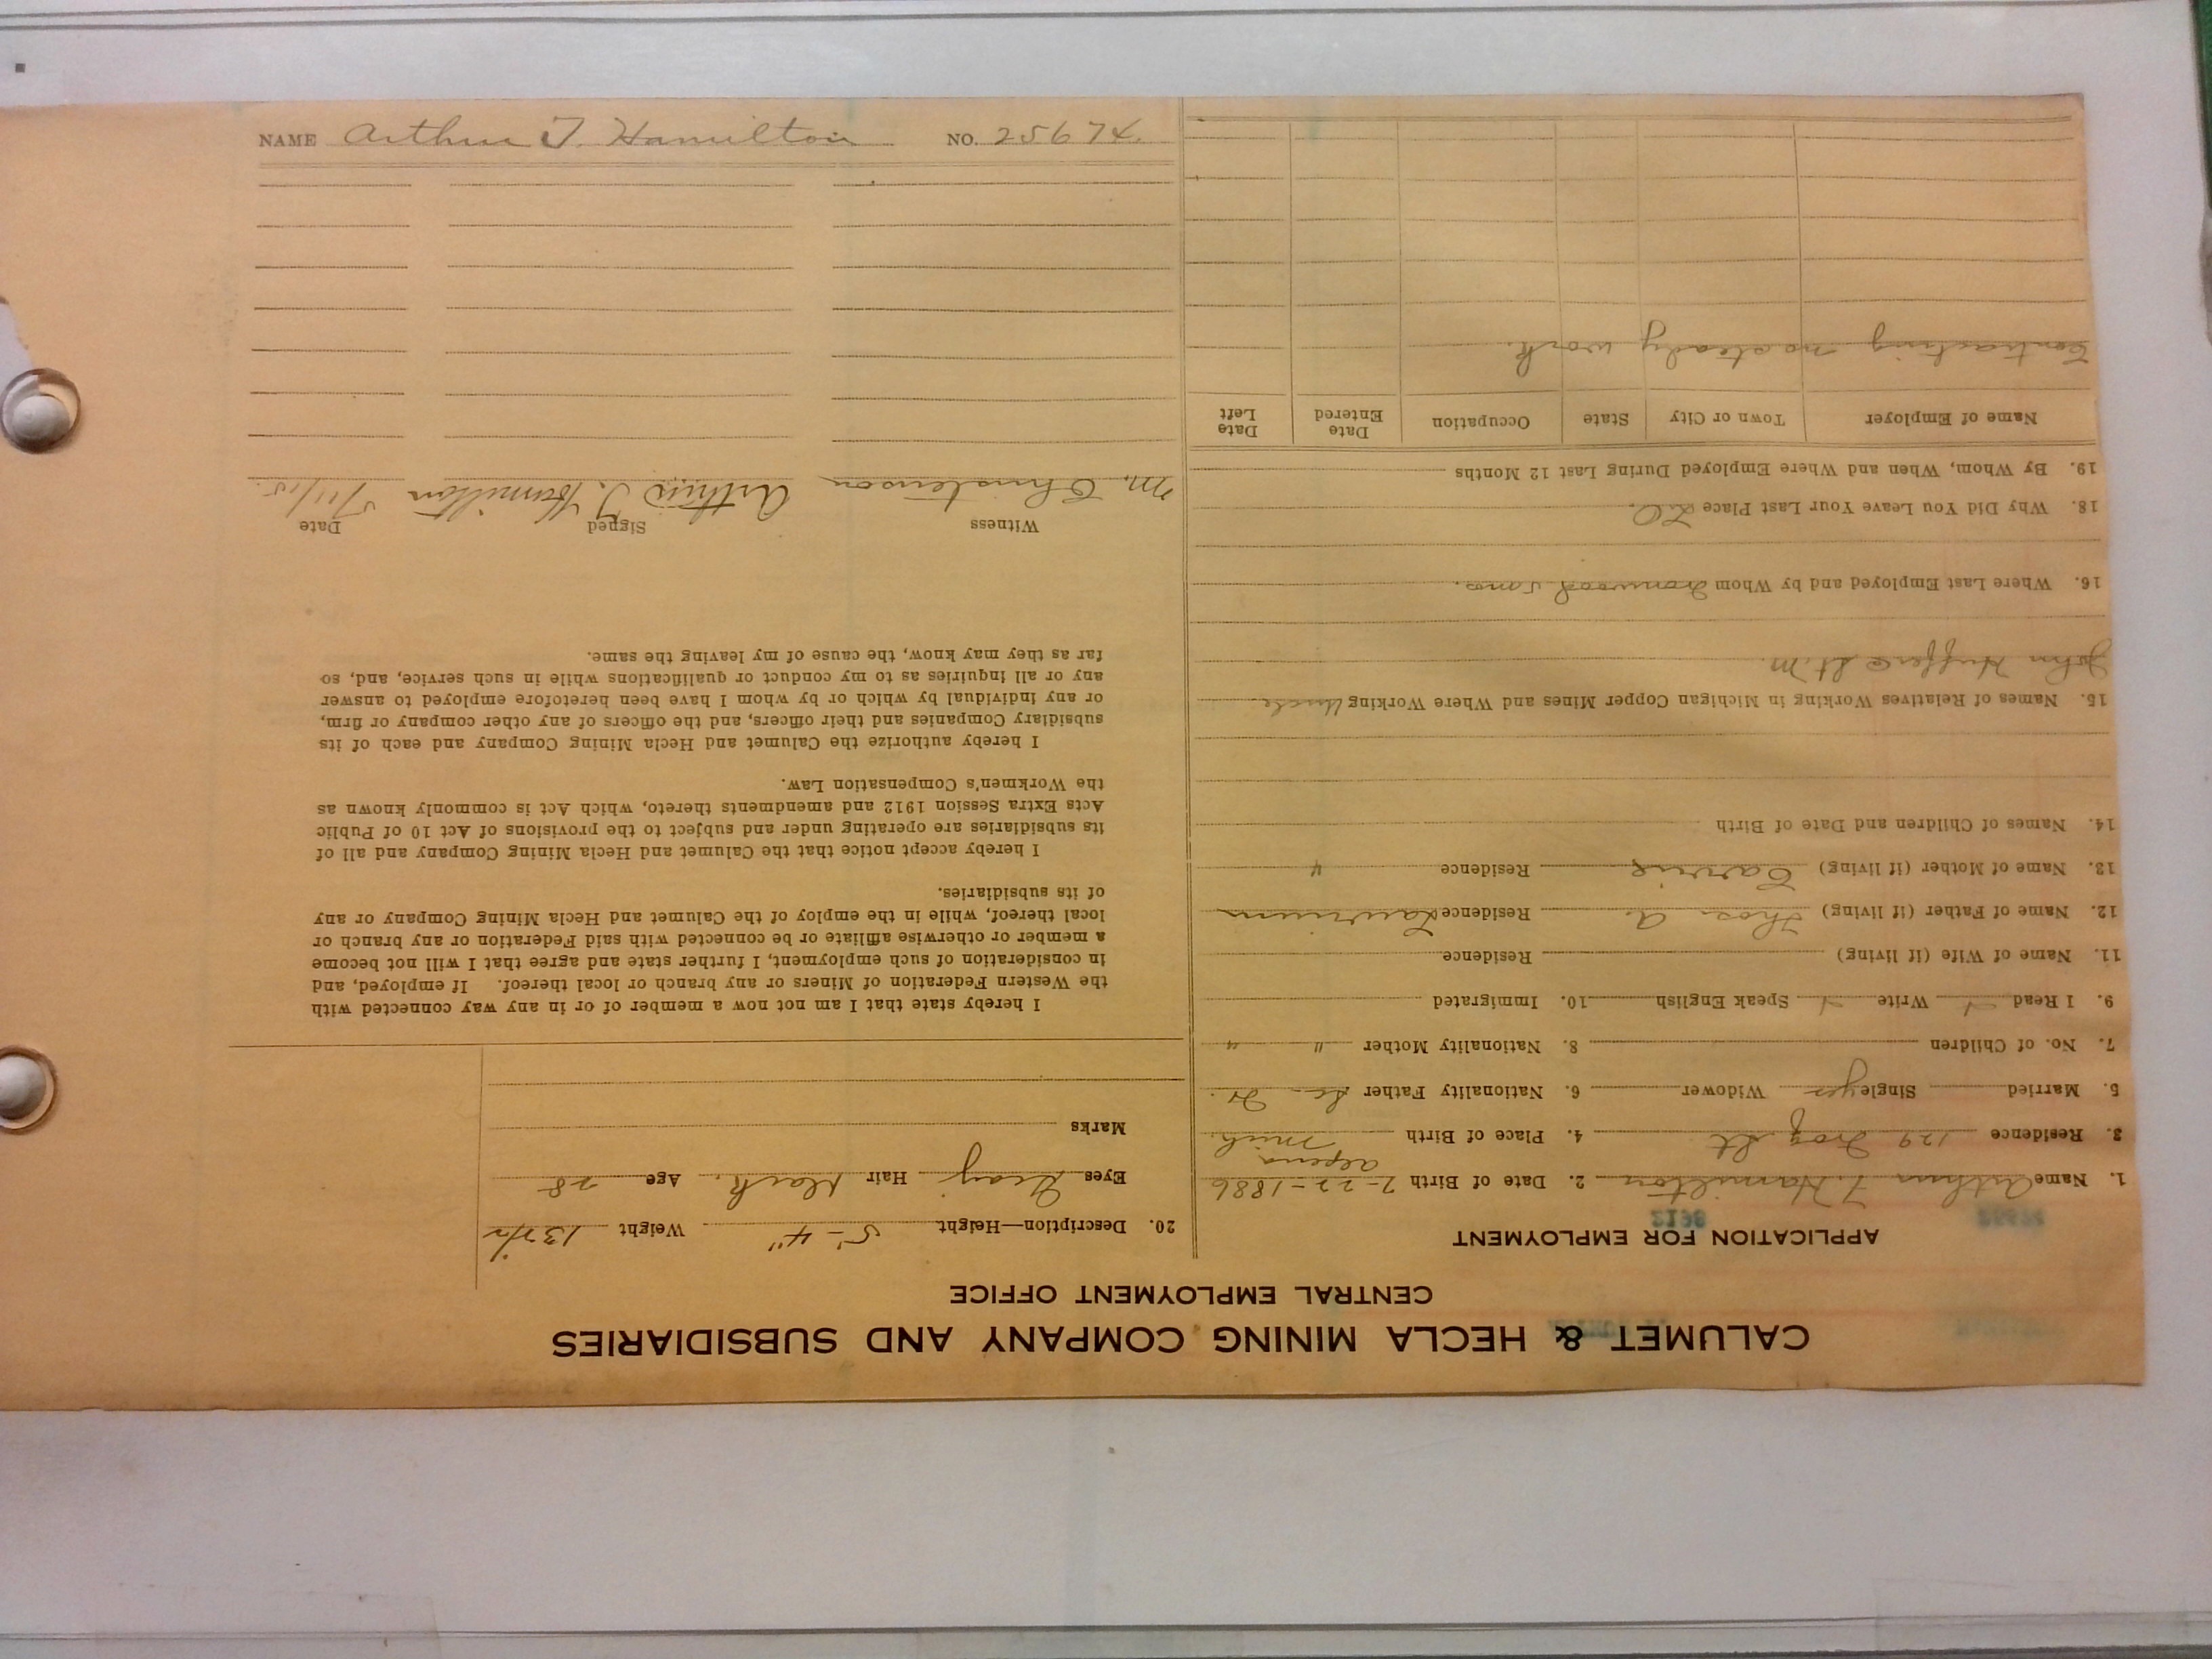 CALUMET & HECLA MINING COMPANY AND SUBSIDIARIES
CENTRAL EMPLOYMENT OFFICE
APPLICATION FOR EMPLOYMENT
2196
1. Name Arthur T. Hamilton 2. Date of Birth 7-22-1886
3. Residence 129 St 4. Place of Birth Alpena Mich.
5. Married Single yes Widower 6. Nationality Father Sc - Ir.
7. No. of Children 8. Nationality Mother " "
9. I Read Write Speak English 10. Immigrated
11. Name of Wife (if living) Residence
12. Name of Father (if living) Thos. A. Residence Laurium
13. Name of Mother (if living) Carrie Residence "
14. Names of Children and Date of Birth
15. Names of Relatives Working in Michigan Copper Mines and Where Working Uncle
John St. M.
16. Where Last Employed and by Whom Ironwood
18. Why Did You Leave Your Last Place
19. By Whom, When and Where Employed During Last 12 Months
Name of Employer Town or City State Occupation Date Entered Date Left
Contracting no steady work.
20. Description—Height 5'-4" Weight 137½
Eyes Gray Hair Dark. Age 28
Marks
I hereby state that I am not now a member of or in any way connected with
the Western Federation of Miners or any branch or local thereof. If employed, and
in consideration of such employment, I further state and agree that I will not become
a member or otherwise affiliate or be connected with said Federation or any branch or
local thereof, while in the employ of the Calumet and Hecla Mining Company or any
of its subsidiaries.
I hereby accept notice that the Calumet and Hecla Mining Company and all of
its subsidiaries are operating under and subject to the provisions of Act 10 of Public
Acts Extra Session 1912 and amendments thereto, which Act is commonly known as
the Workmen's Compensation Law.
I hereby authorize the Calumet and Hecla Mining Company and each of its
subsidiary Companies and their officers, and the officers of any other company or firm,
or any individual by which or by whom I have been heretofore employed to answer
any or all inquiries as to my conduct or qualifications while in such service, and, so
far as they may know, the cause of my leaving the same.
Witness Signed Date
M. Christenson Arthur T. Hamilton 5/11/15.
NAME Arthur T. Hamilton NO. 25674.